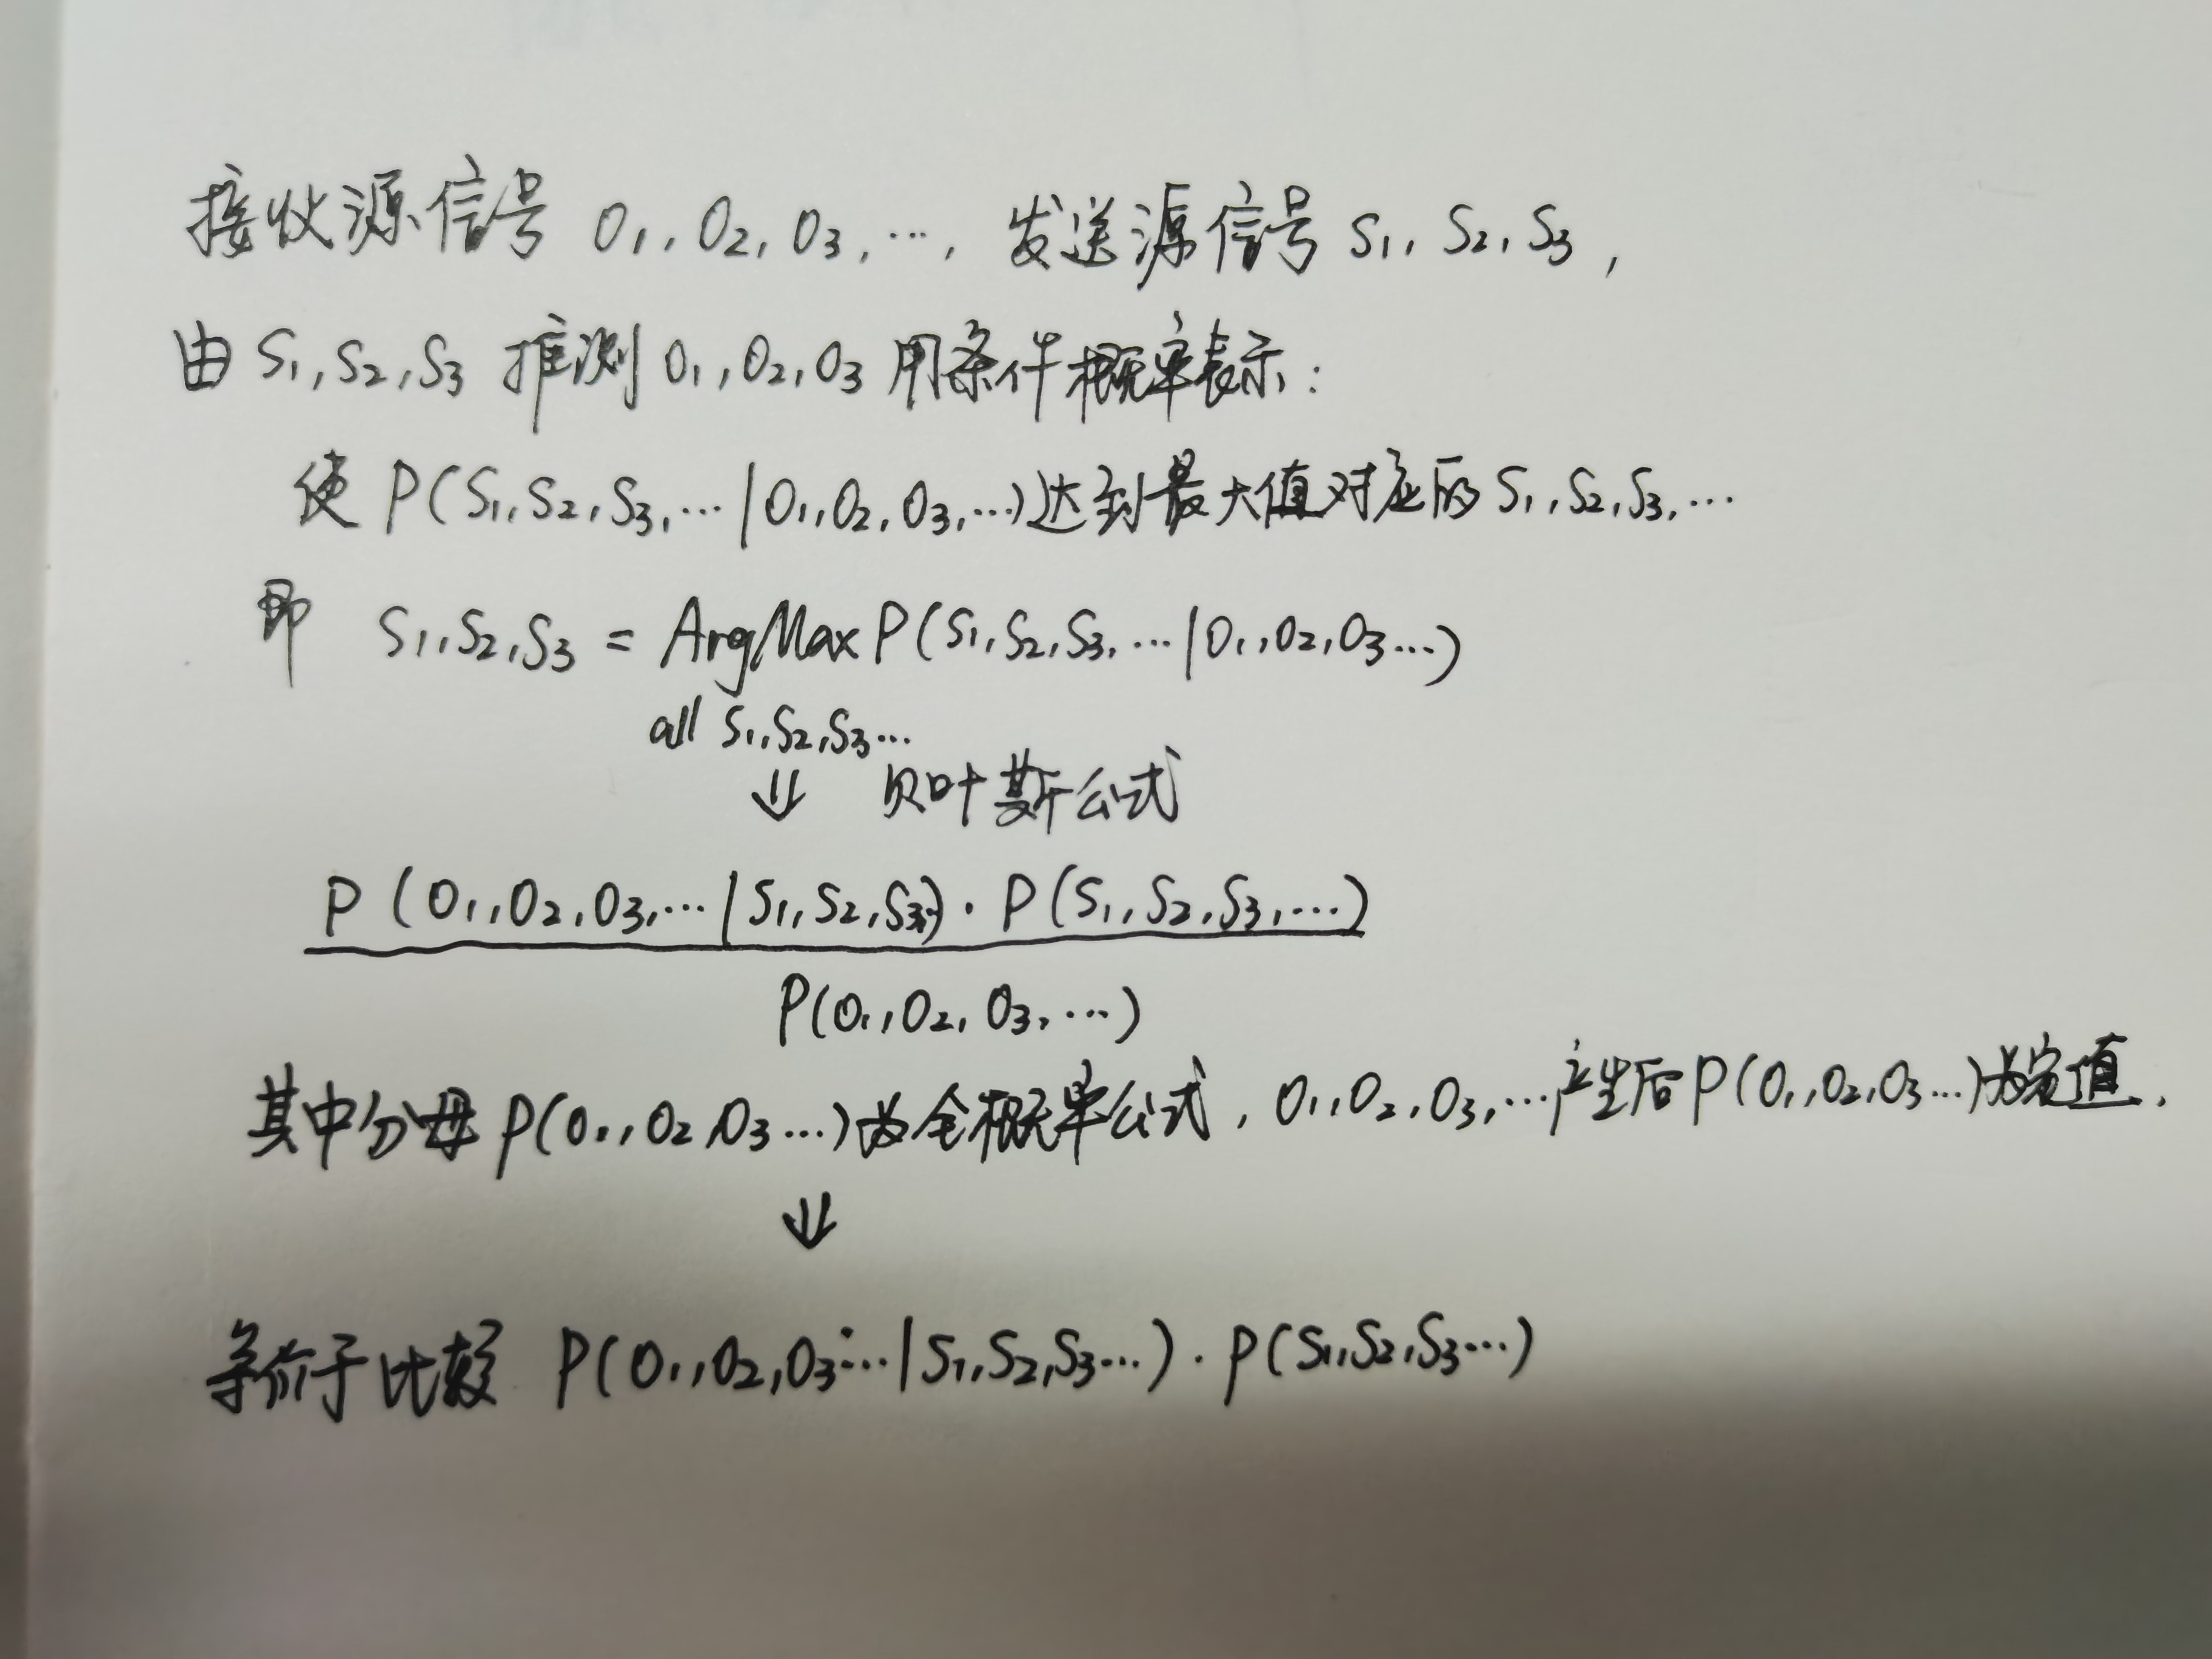 接收源信号 O₁, O₂, O₃, …, 发送源信号 S₁, S₂, S₃,
由 S₁, S₂, S₃ 推测 O₁, O₂, O₃ 用条件概率表示:
使 P(S₁, S₂, S₃, … | O₁, O₂, O₃, …) 达到最大值对应的 S₁, S₂, S₃, …
即 S₁, S₂, S₃ = ArgMax P(S₁, S₂, S₃, … | O₁, O₂, O₃ …)
all S₁, S₂, S₃ …
⇓ 贝叶斯公式
P(O₁, O₂, O₃, … | S₁, S₂, S₃..) · P(S₁, S₂, S₃, …)
P(O₁, O₂, O₃, …)
其中分母 P(O₁, O₂, O₃ …) 为全概率公式, O₁, O₂, O₃, … 产生后 P(O₁, O₂, O₃ …) 为定值.
⇓
等价于比较 P(O₁, O₂, O₃ … | S₁, S₂, S₃ …) · P(S₁, S₂, S₃ …)